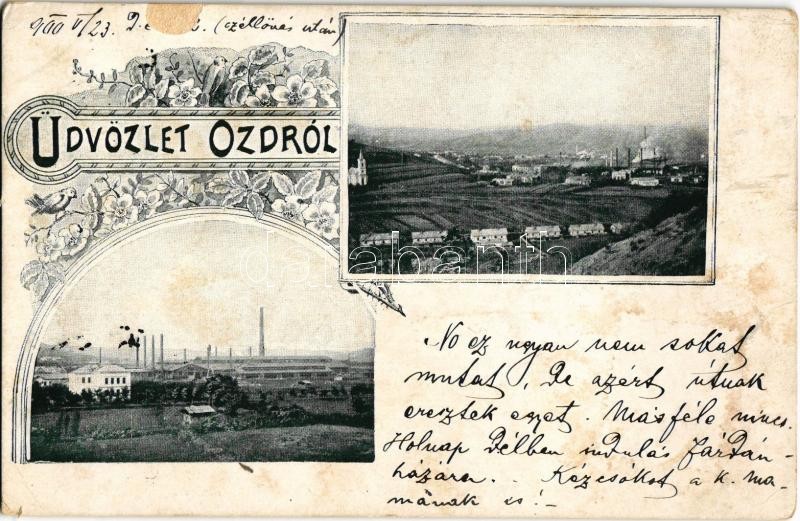 900 V/23. D.e. (czéllövés után)
ÜDVÖZLET OZDRÓL
darabanth
No ez ugyan nem sokat
mutat, De azért útnak
eresztek egyet. Másféle nincs.
Holnap Délben indulás Járdán-
házára. - Kézcsókot a k. ma-
mának is! -